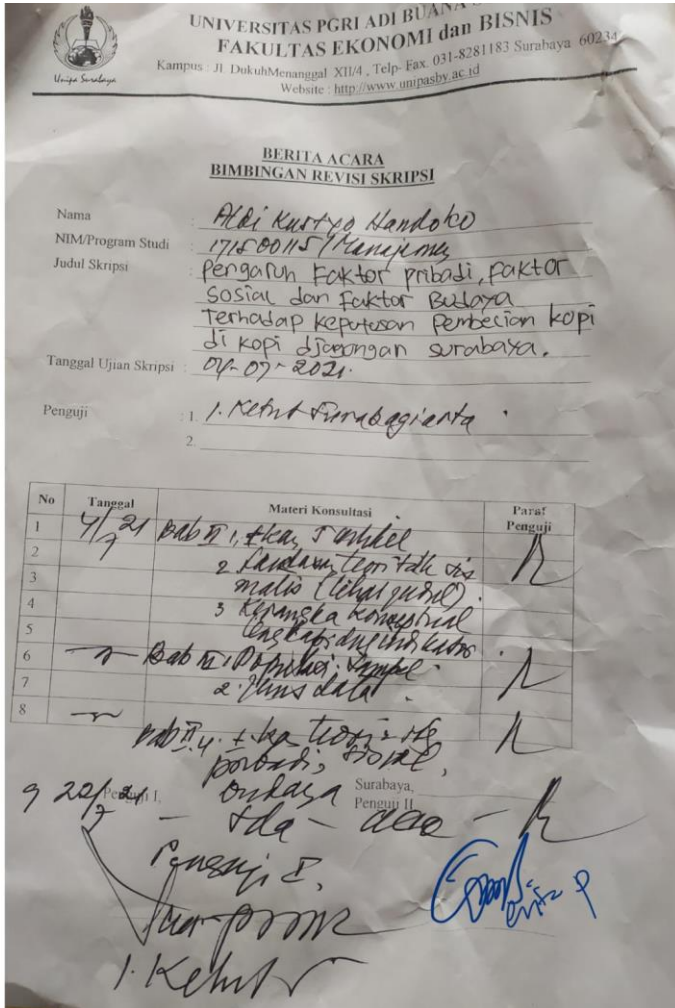 UNIVERSITAS PGRI ADI BUANA
FAKULTAS EKONOMI dan BISNIS
Kampus : Jl. DukuhMenanggal XII/4 , Telp- Fax. 031-8281183 Surabaya 60234
Website : http://www.unipasby.ac.id
Unipa Surabaya
BERITA ACARA
BIMBINGAN REVISI SKRIPSI
Nama : Aldi Kustyo Handoko
NIM/Program Studi : 171500115/Manajemen
Judul Skripsi : Pengaruh Faktor pribadi, Faktor
Sosial dan Faktor Budaya
Terhadap keputusan Pembelian kopi
di kopi djagongan surabaya.
Tanggal Ujian Skripsi : 04-07-2021.
Penguji : 1. I. Ketut Surabagiarta
2.
No Tanggal Materi Konsultasi Paraf Penguji
1 4/7 21 Bab II 1.
2 2 Landasan teori tdk sis
3 matis (lihat judul).
4 3 Kerangka konseptual
5 lengkapi dng indikator.
6 Bab III. Populasi. Sampel.
7 2. Jenis data.
8
teori
pribadi, sosial,
budaya
Surabaya,
9 20/7 21 Penguji I, Penguji II
Penguji I.
I. Ketut